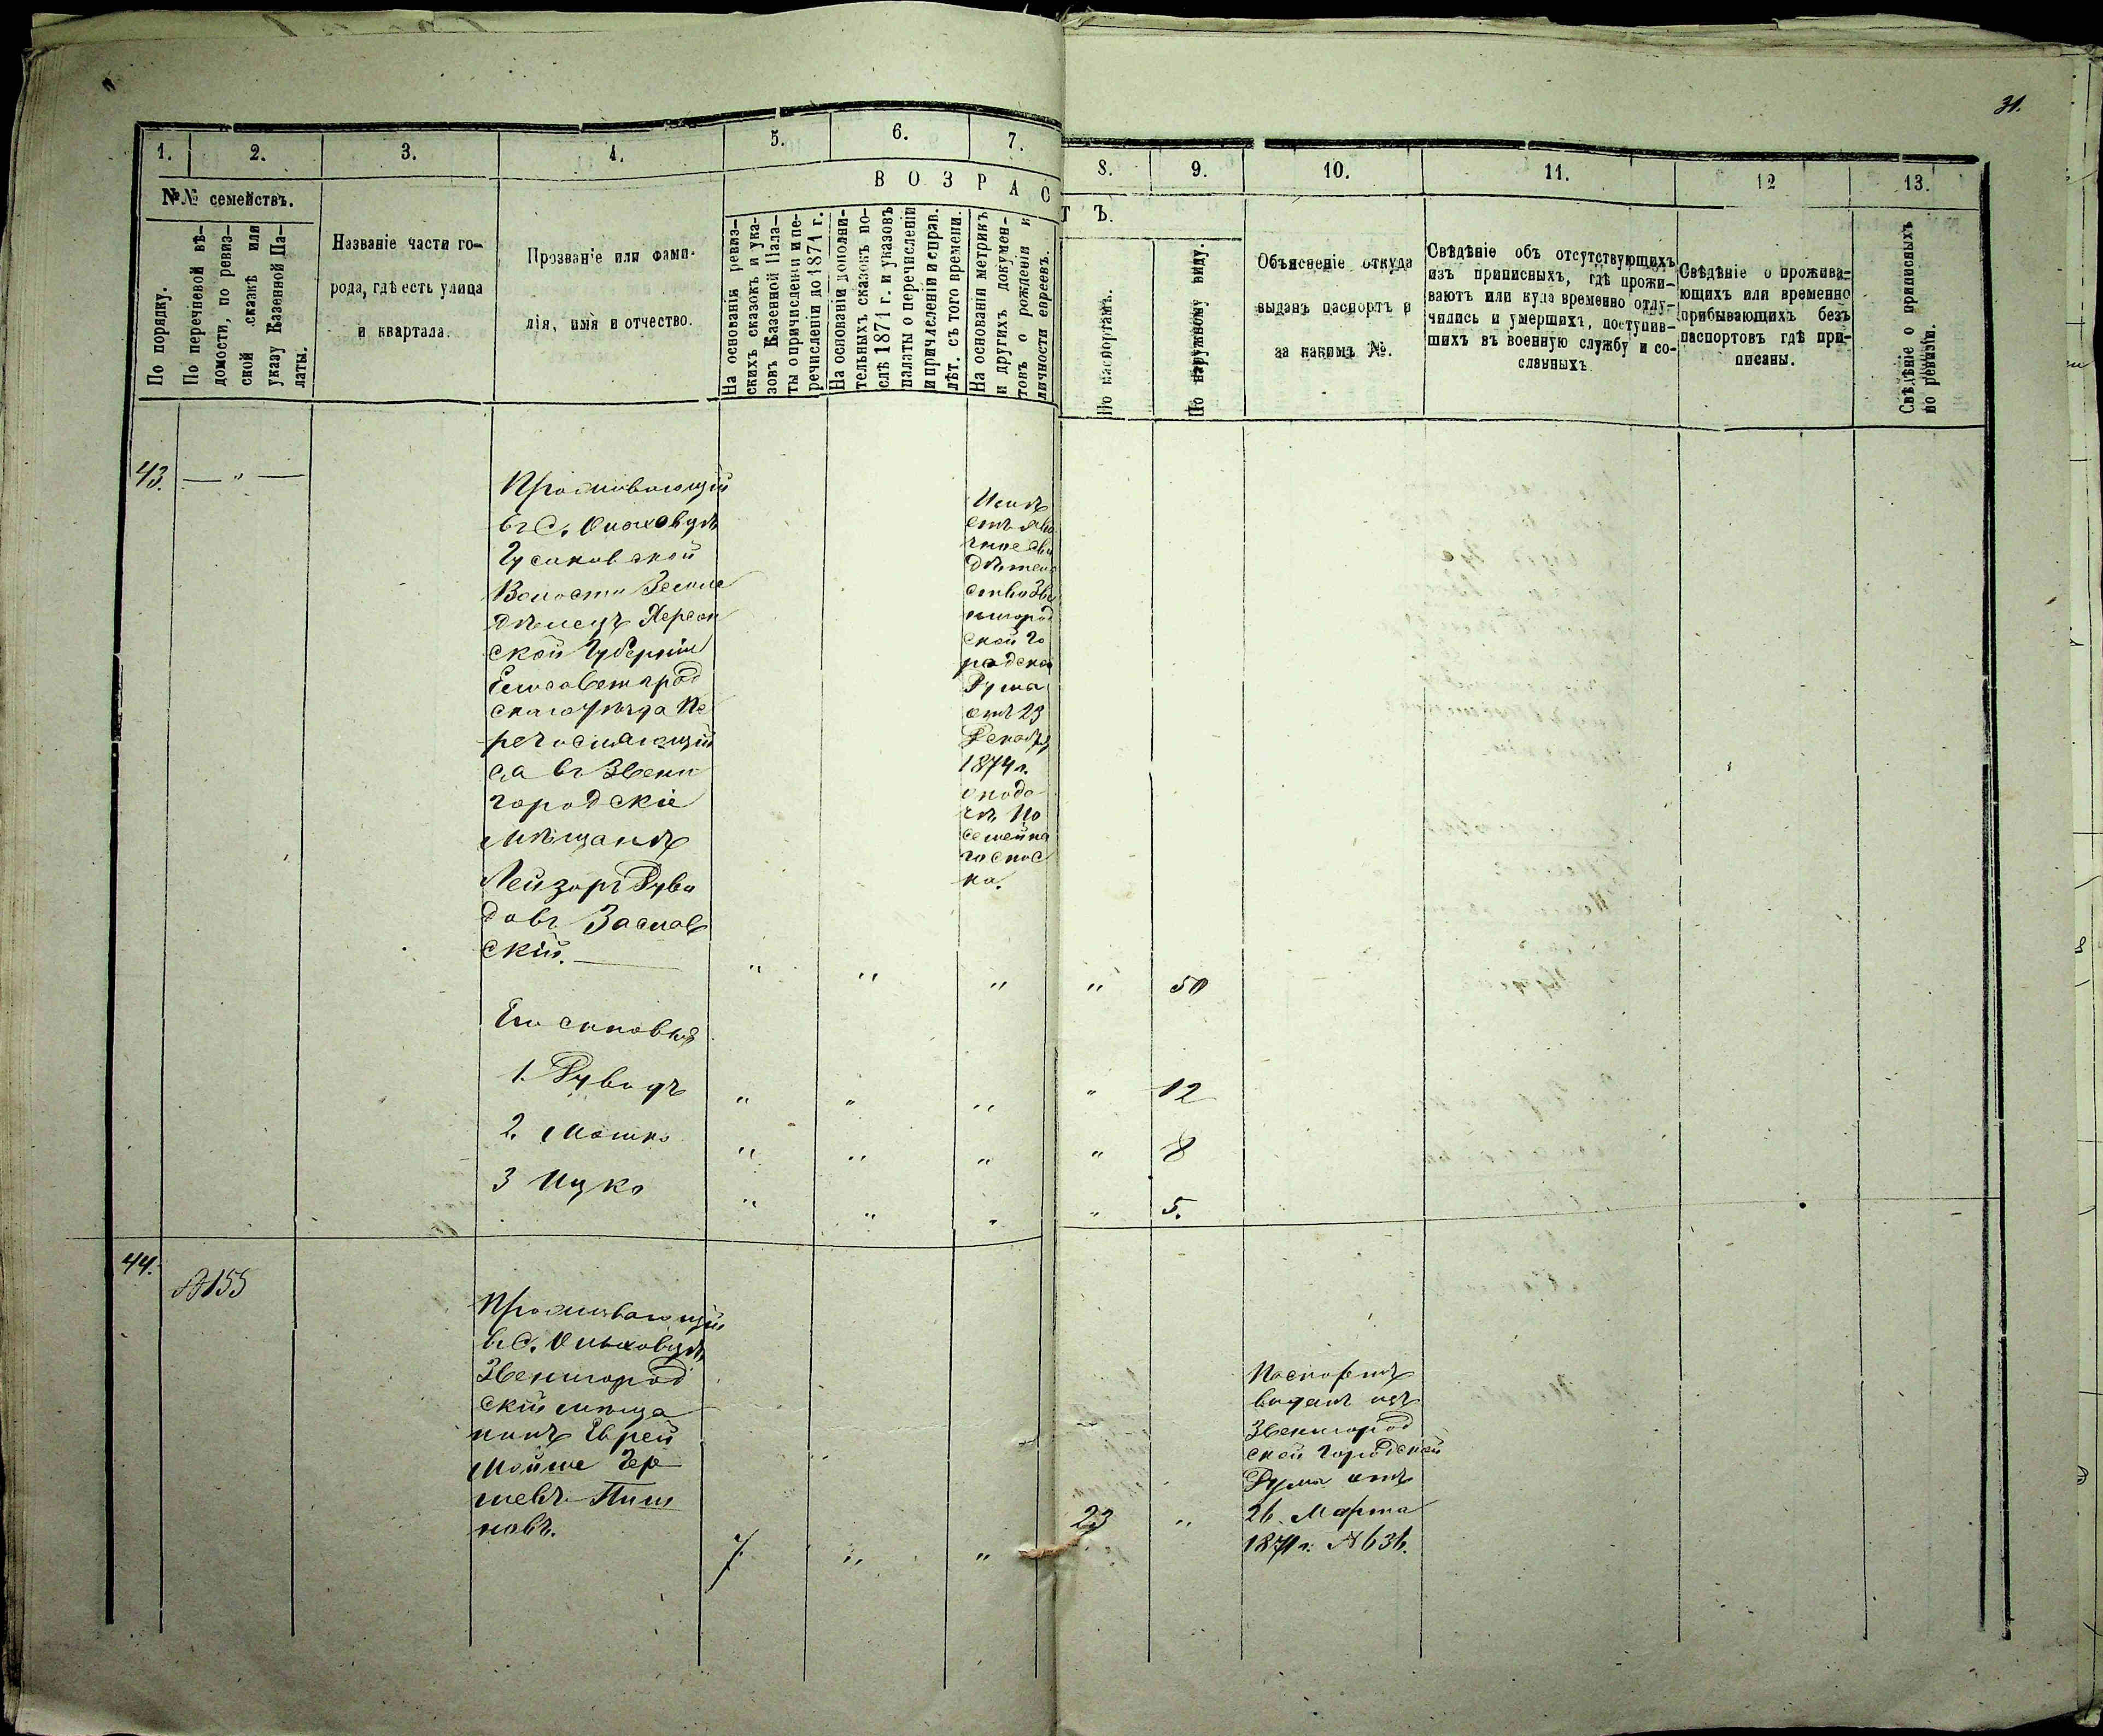 31.
1.
2.
3.
4.
5.
6.
7.
8.
9.
10.
11.
12
13.
№№ семействъ.
По порядку.
По перечневой вѣ-
домости, по ревиз-
ской сказкѣ или
указу Казенной Па-
латы.
Названіе части го-
рода, гдѣ есть улица
и квартала.
Прозваніе или фами-
лія, имя и отчество.
ВОЗРАСТЪ.
На основаніи ревиз-
скихъ сказокъ и ука-
зовъ Казенной Пала-
ты о причисленіи и пе-
речисленіи до 1871 г.
На основаніи дополни-
тельныхъ сказокъ по-
слѣ 1871 г. и указовъ
палаты о перечисленіи
и причисленіи и справ.
лѣт. съ того времени.
На основаніи метрикъ
и другихъ докумен-
товъ о рожденіи и
личности евреевъ.
По паспортамъ.
По наружному виду.
Объясненіе откуда
выданъ паспортъ и
за какимъ №.
Свѣдѣніе объ отсутствующихъ
изъ приписныхъ, гдѣ прожи-
ваютъ или куда временно отлу-
чились и умершихъ, поступив-
шихъ въ военную службу и со-
славныхъ
Свѣдѣніе о прожива-
ющихъ или временно
прибывающихъ безъ
паспортовъ гдѣ при-
писаны.
Свѣдѣніе о приписныхъ
по ревизіи.
43. — " —
Проживающій
въ С. Ольховцѣ
Гусаковской
Волости Земле
дѣлецъ Херсон
ской Губерніи
Елисаветград
скаго Уѣзда Пе
речисляющій
ся въ Звени
городскіе
мѣщане
Лейзоръ Руви
новъ Заслав
скій.
Имѣ
етъ
свидѣтель
ство Зве
нигород
ской Го
родской
Думы
отъ 23
Декабря
1874 г.
о пода
чѣ По
семейна
го спис
ка.
" " " " 50
Его сыновья
1. Рувинъ " " " " 12
2. Мошко " " " " 8
3 Ицко " " " " 5.
44. №155
Проживающій
въ С. Ольховцѣ
Звенигород
скій мѣща
нинъ Еврей
Мойше Гер
шевъ
7. " " 23 "
Паспортъ
выданъ изъ
Звенигород
ской Городской
Думы отъ
26. Марта
1871 г. № 636.